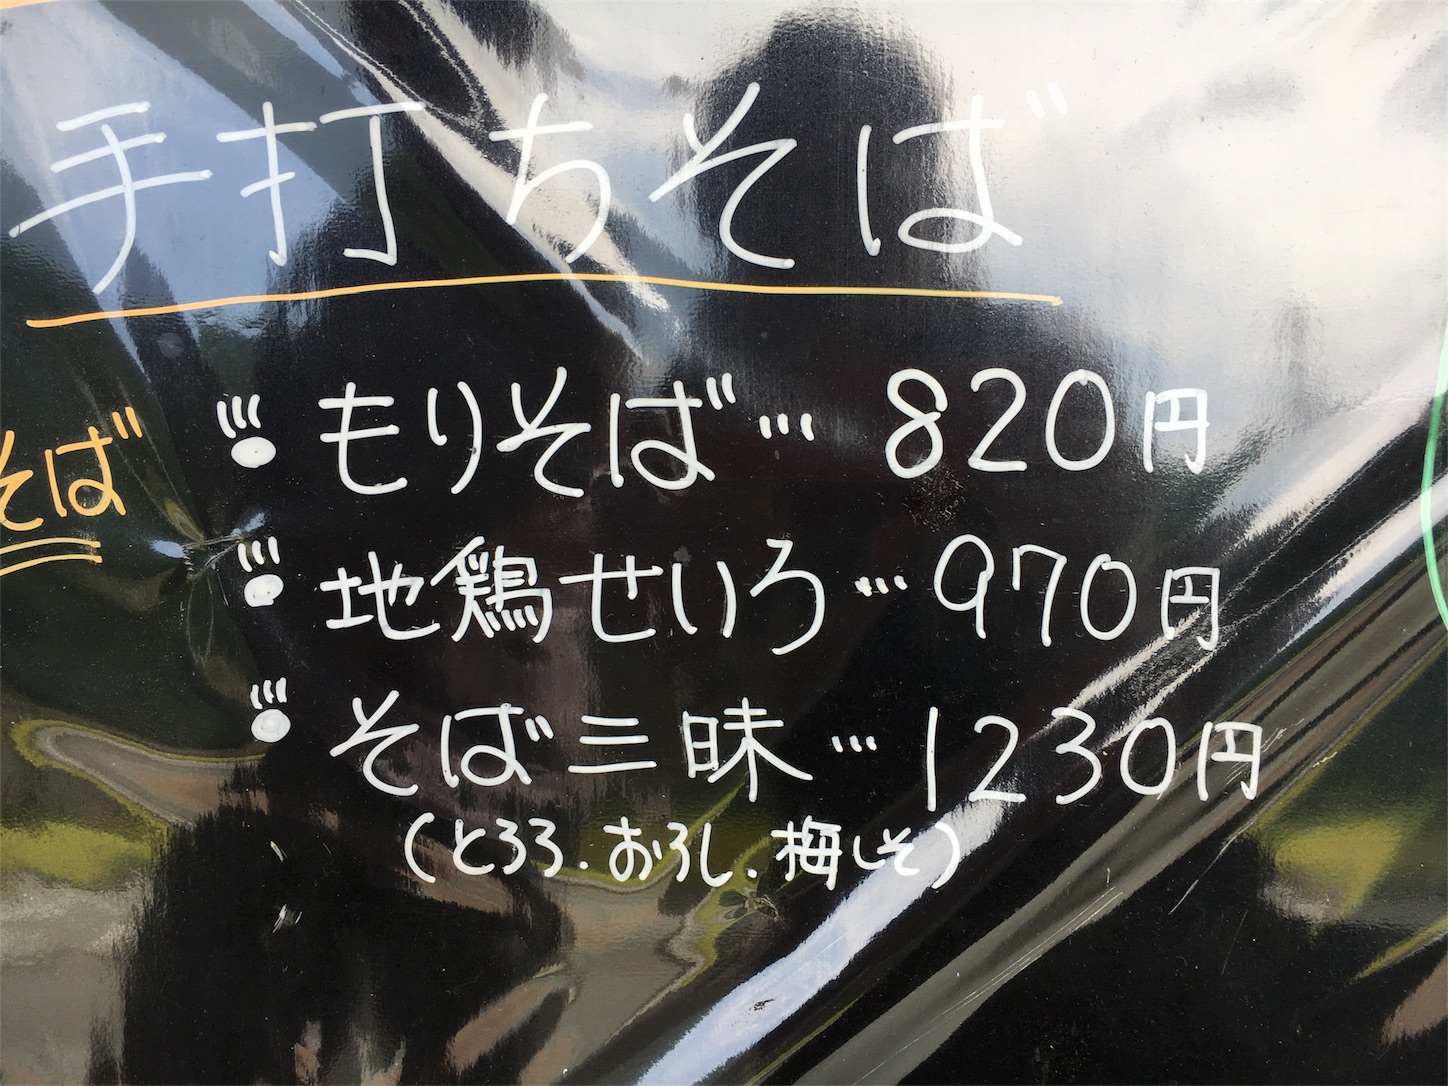 手打ちそば
もりそば…820円
そば
地鶏せいろ…970円
そば三昧…1230円
(とろろ.おろし.梅しそ)